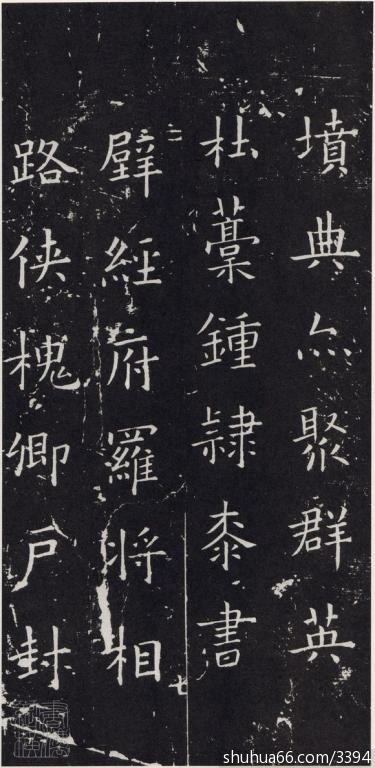 墳典亦聚群英
杜藁鍾隸桼書
壁經府羅將相
路俠槐卿戶封
七
shuhua66.com/3394